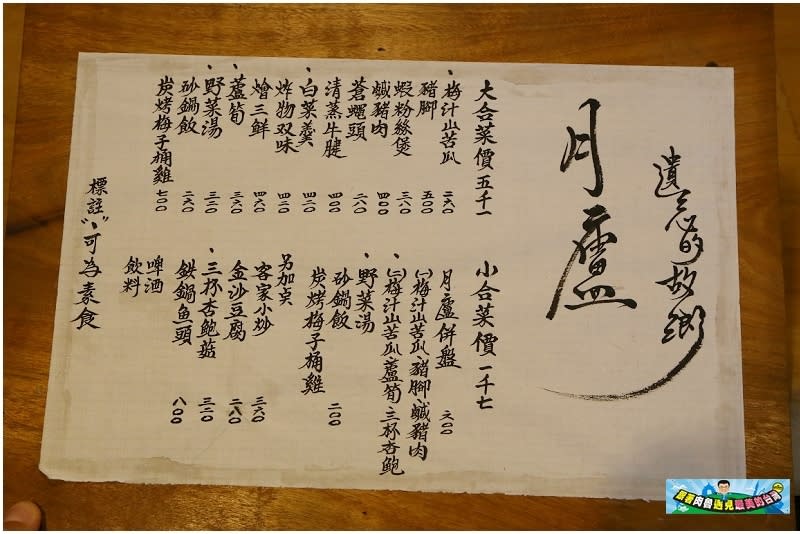 遺忘的故鄉
月廬
大合菜價 五千一
、梅汁山苦瓜 二六〇
豬腳 五〇〇
蝦粉絲煲 三八〇
鹹豬肉 四〇〇
蒼蠅頭 二八〇
清蒸牛腱 四〇〇
、白菜羹 四二〇
炸物双味 四二〇
燴三鮮 四六〇
、蘆筍 三六〇
、野菜湯 三二〇
砂鍋飯 二六〇
炭烤梅子桶雞 七〇〇
小合菜價 一千七
月廬併盤 六〇〇
(一)梅汁山苦瓜、豬腳、鹹豬肉
、(二)梅汁山苦瓜、蘆筍、三杯杏鮑
、野菜湯
砂鍋飯 二〇〇
炭烤梅子桶雞
另加点
客家小炒 三六〇
金沙豆腐 二八〇
、三杯杏鮑菇 三二〇
鉄鍋鱼頭 八〇〇
啤酒
飲料
標註"、"可為素食
跟著肉魯遇見最美的台灣